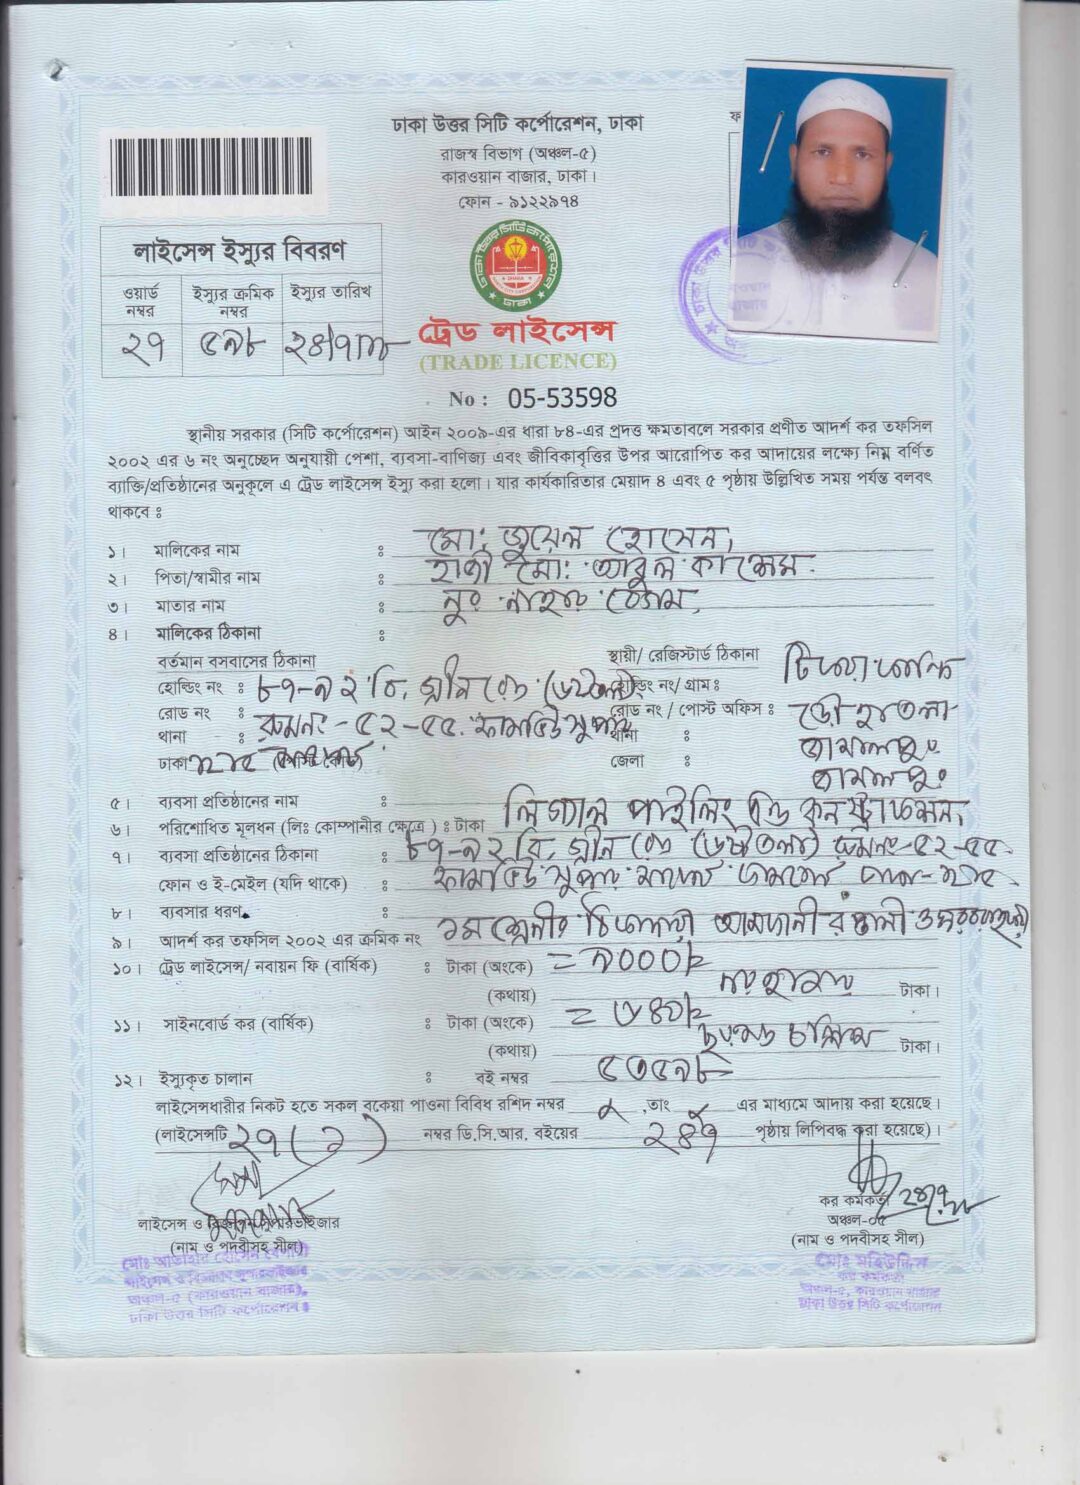 ঢাকা উত্তর সিটি কর্পোরেশন, ঢাকা
রাজস্ব বিভাগ (অঞ্চল-৫)
কারওয়ান বাজার, ঢাকা।
ফোন - ৯১২২৯৭৪
লাইসেন্স ইস্যুর বিবরণ
ওয়ার্ড নম্বর ইস্যুর ক্রমিক নম্বর ইস্যুর তারিখ
২৭ ৫৯৮ ২৪/৭
ট্রেড লাইসেন্স
(TRADE LICENCE)
No : 05-53598
স্থানীয় সরকার (সিটি কর্পোরেশন) আইন ২০০৯-এর ধারা ৮৪-এর প্রদত্ত ক্ষমতাবলে সরকার প্রণীত আদর্শ কর তফসিল
২০০২ এর ৬ নং অনুচ্ছেদ অনুযায়ী পেশা, ব্যবসা-বাণিজ্য এবং জীবিকাবৃত্তির উপর আরোপিত কর আদায়ের লক্ষ্যে নিম্ন বর্ণিত
ব্যক্তি/প্রতিষ্ঠানের অনুকূলে এ ট্রেড লাইসেন্স ইস্যু করা হলো। যার কার্যকারিতার মেয়াদ ৪ এবং ৫ পৃষ্ঠায় উল্লিখিত সময় পর্যন্ত বলবৎ
থাকবে ঃ
১। মালিকের নাম ঃ মো: জুয়েল হোসেন,
২। পিতা/স্বামীর নাম ঃ হাজী মো: আবুল কাশেম
৩। মাতার নাম ঃ নুর নাহার বেগম,
৪। মালিকের ঠিকানা ঃ
বর্তমান বসবাসের ঠিকানা স্থায়ী/ রেজিস্টার্ড ঠিকানা
হোল্ডিং নং ঃ ৮৭-৯২ বি, গ্রীন রোড হোল্ডিং নং/ গ্রাম ঃ
রোড নং ঃ রুমনং - ৫২-৫৫ রোড নং / পোস্ট অফিস ঃ
থানা ঃ থানা ঃ জামালপুর
ঢাকা জেলা ঃ জামালপুর
৫। ব্যবসা প্রতিষ্ঠানের নাম ঃ লিগ্যাল পাইলিং এন্ড কনস্ট্রাকশন,
৬। পরিশোধিত মূলধন (লিঃ কোম্পানীর ক্ষেত্রে) ঃ টাকা
৭। ব্যবসা প্রতিষ্ঠানের ঠিকানা ঃ ৮৭-৯২ বি, গ্রীন রোড রুমনং-৫২-৫৫
ফোন ও ই-মেইল (যদি থাকে) ঃ
৮। ব্যবসার ধরণ ঃ ১ম শ্রেণীর ঠিকাদারী আমদানী রপ্তানী ও সরবরাহকারী
৯। আদর্শ কর তফসিল ২০০২ এর ক্রমিক নং
১০। ট্রেড লাইসেন্স/ নবায়ন ফি (বার্ষিক) ঃ টাকা (অংকে) = ৯০০০/=
(কথায়) নয় হাজার টাকা।
১১। সাইনবোর্ড কর (বার্ষিক) ঃ টাকা (অংকে) = ৬৪০/=
(কথায়) ছয়শত চল্লিশ টাকা।
১২। ইস্যুকৃত চালান ঃ বই নম্বর ৫৩৫৯৮
লাইসেন্সধারীর নিকট হতে সকল বকেয়া পাওনা বিবিধ রশিদ নম্বর ,তাং এর মাধ্যমে আদায় করা হয়েছে।
(লাইসেন্সটি ২৭(১) নম্বর ডি.সি.আর. বইয়ের ২৪৭ পৃষ্ঠায় লিপিবদ্ধ করা হয়েছে)।
লাইসেন্স ও বিজ্ঞাপন সুপারভাইজার
(নাম ও পদবীসহ সীল)
কর কর্মকর্তা
অঞ্চল-০৫
(নাম ও পদবীসহ সীল)
লাইসেন্স ও বিজ্ঞাপন সুপারভাইজার
অঞ্চল-৫ (কারওয়ান বাজার),
ঢাকা উত্তর সিটি কর্পোরেশন।
মোঃ মহিউদ্দিন
কর কর্মকর্তা
অঞ্চল-৫, কারওয়ান বাজার
ঢাকা উত্তর সিটি কর্পোরেশন